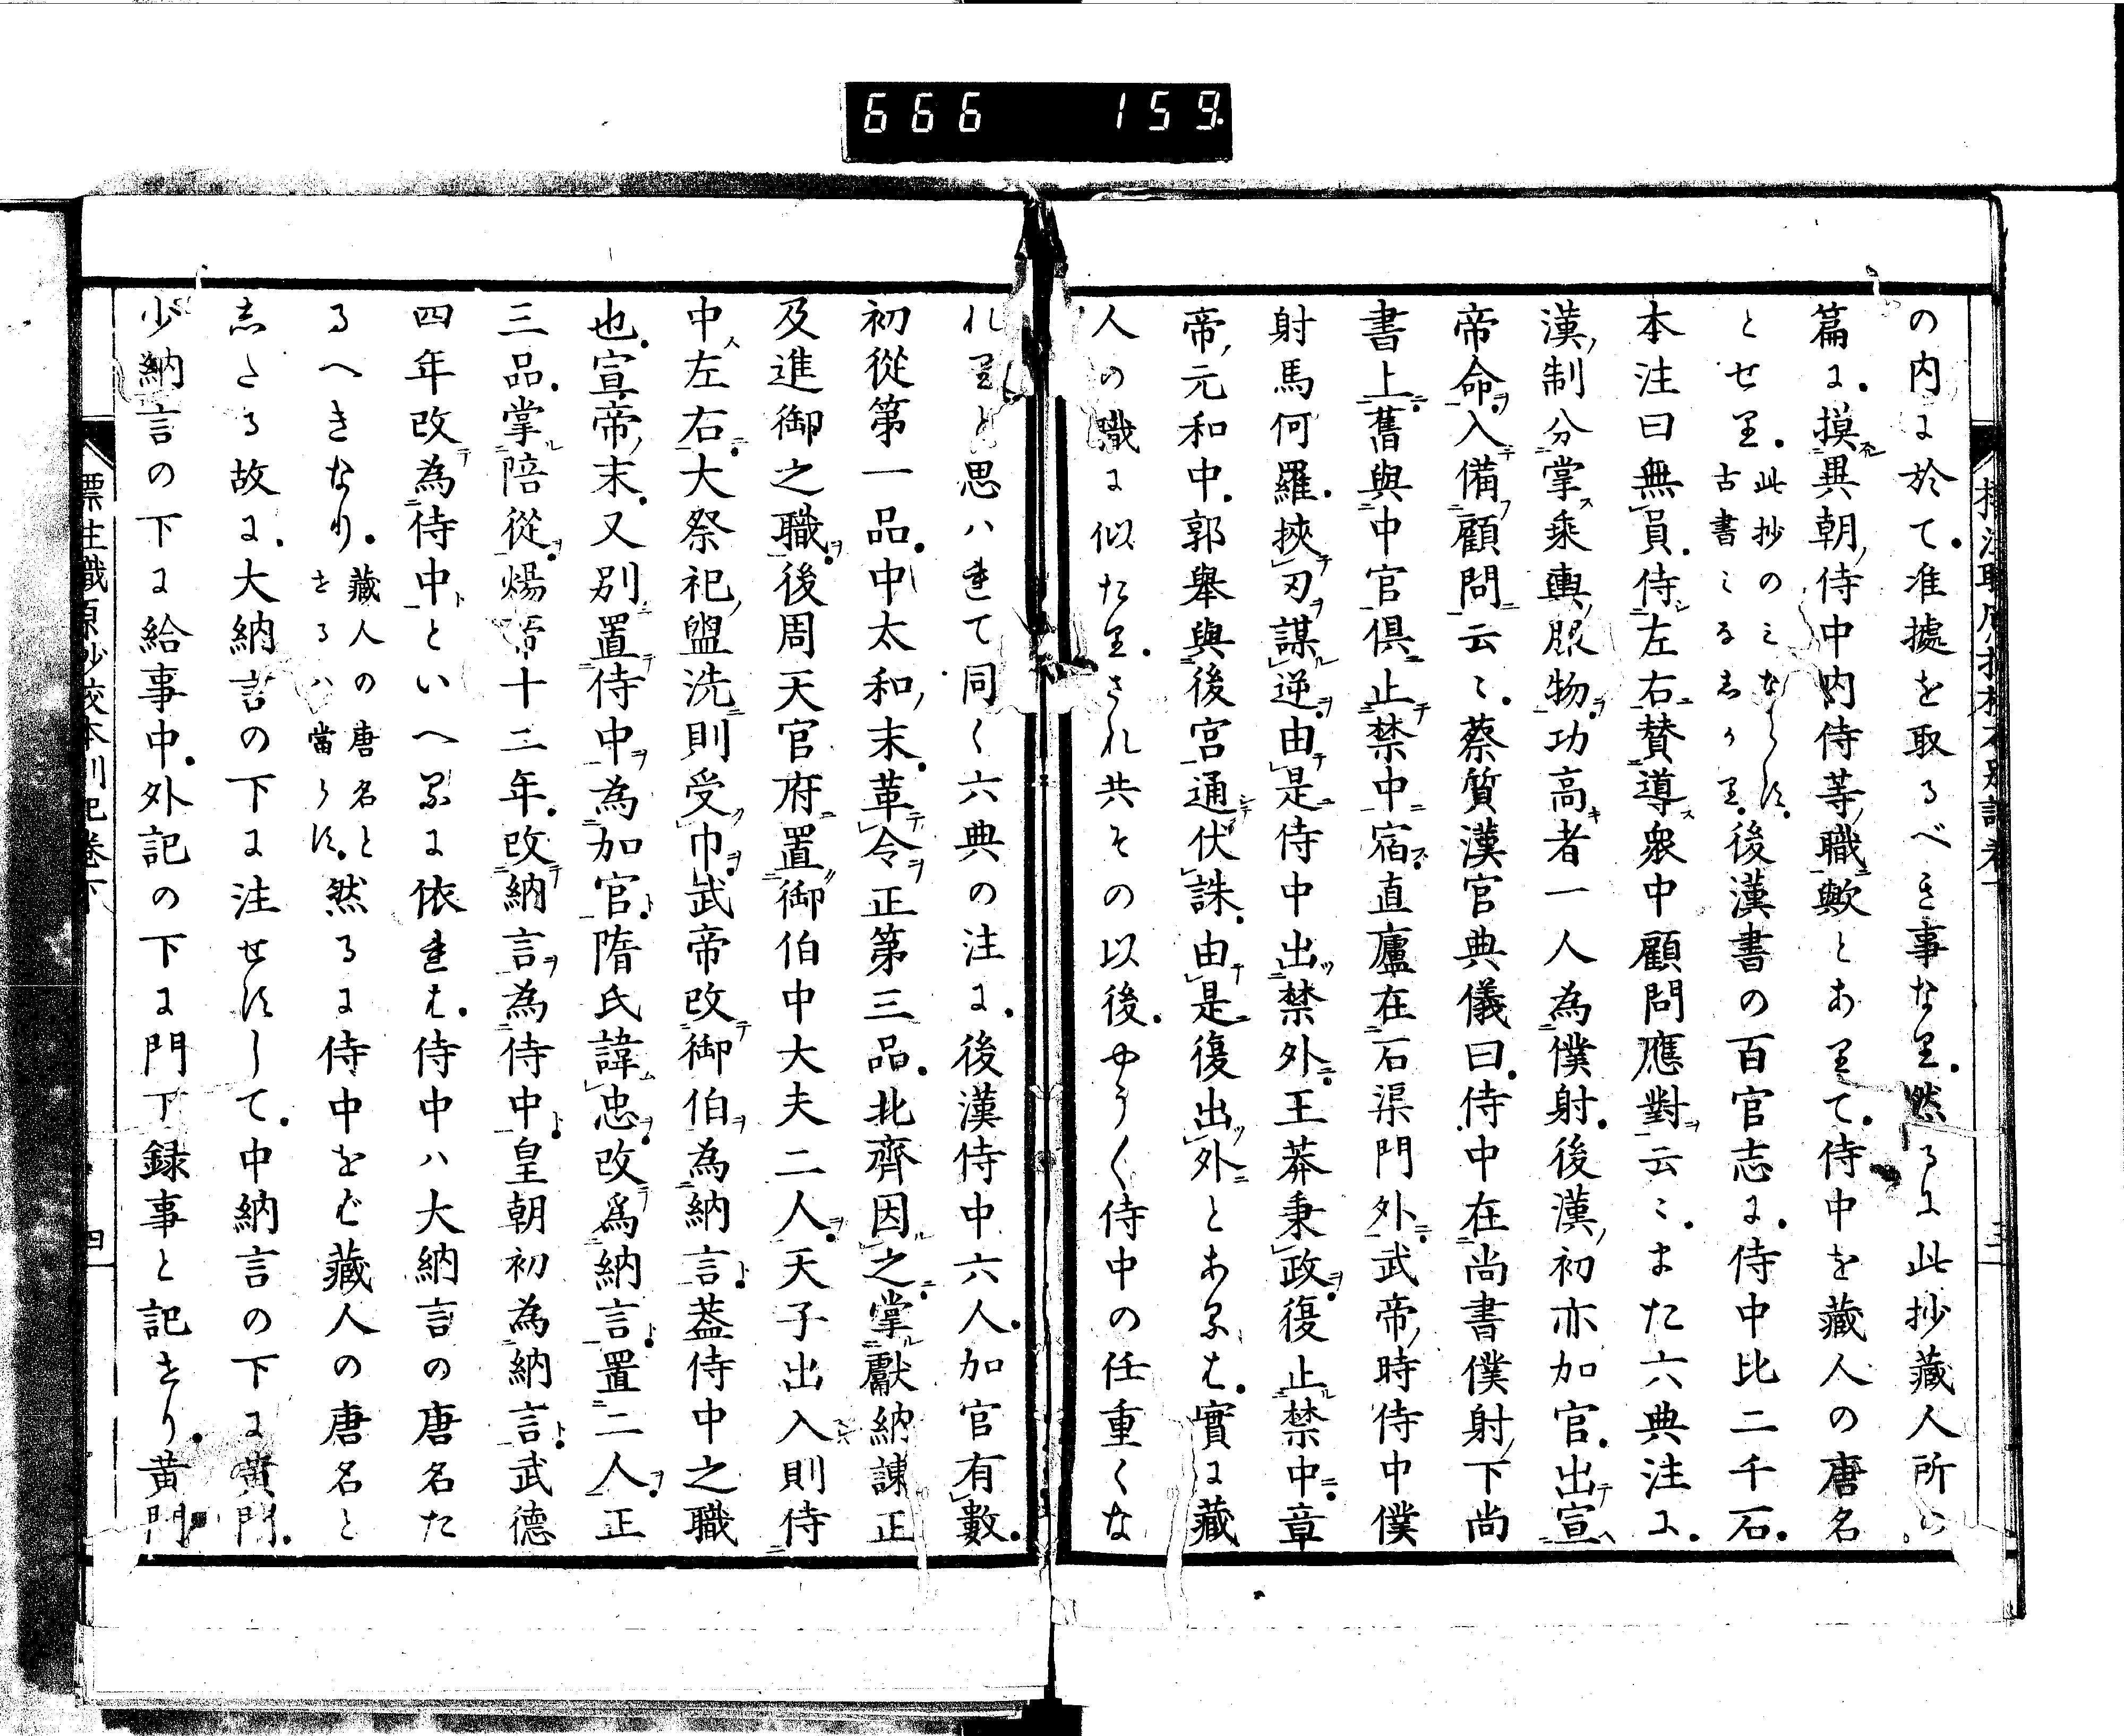 666 159
の内に於て准據を取るべき事なり然るに此抄藏人所
篇に摸異朝侍中内侍等職歟とありて侍中を藏人の唐名
とせり此抄のみならす古書みなしかり後漢書の百官志に侍中比二千石
本注曰無員侍左右賛導衆中顧問應對云〻また六典注に
漢制分掌乘輿服物功高者一人為僕射後漢初亦加官出宣
帝命入備顧問云〻蔡質漢官典儀曰侍中在尚書僕射下尚
書上舊與中官倶止禁中宿直廬在石渠門外武帝時侍中僕
射馬何羅挾刃謀逆由是侍中出禁外王莽秉政復止禁中章
帝元和中郭舉與後宮通伏誅由是復出外とあれは實に藏
人の職に似たりされ共その以後やうく侍中の任重くな
れりと思ハれて同く六典の注に後漢侍中六人加官有數
初從第一品中太和末革令正第三品北齊因之掌獻納諫正
及進御之職後周天官府置御伯中大夫二人天子出入則侍
中左右大祭祀盥洗則受巾武帝改御伯為納言葢侍中之職
也宣帝末又別置侍中為加官隋氏諱忠改爲納言置二人正
三品掌陪從煬帝十三年改納言為侍中皇朝初為納言武德
四年改為侍中といへるに依れは侍中ハ大納言の唐名た
るへきなり藏人の唐名とせるハ當らす然るに侍中をば藏人の唐名と
したる故に大納言の下に注せすして中納言の下に黄門
少納言の下に給事中外記の下に門下録事と記せり黄門
標注職原抄校本別記卷下 四